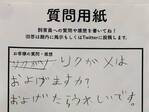 質問用紙
飼育員への質問や感想を書いてね!
回答は館内に掲示もしくはTwitterに投稿します。
お客様の質問・感想
リクガメは
およげますか?
およげたらうれしいです。